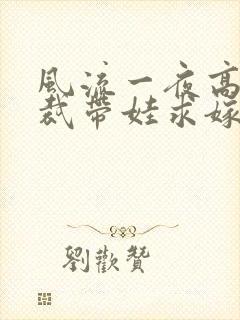 風流一夜高
裁帶娃求嫁
劉歡贊